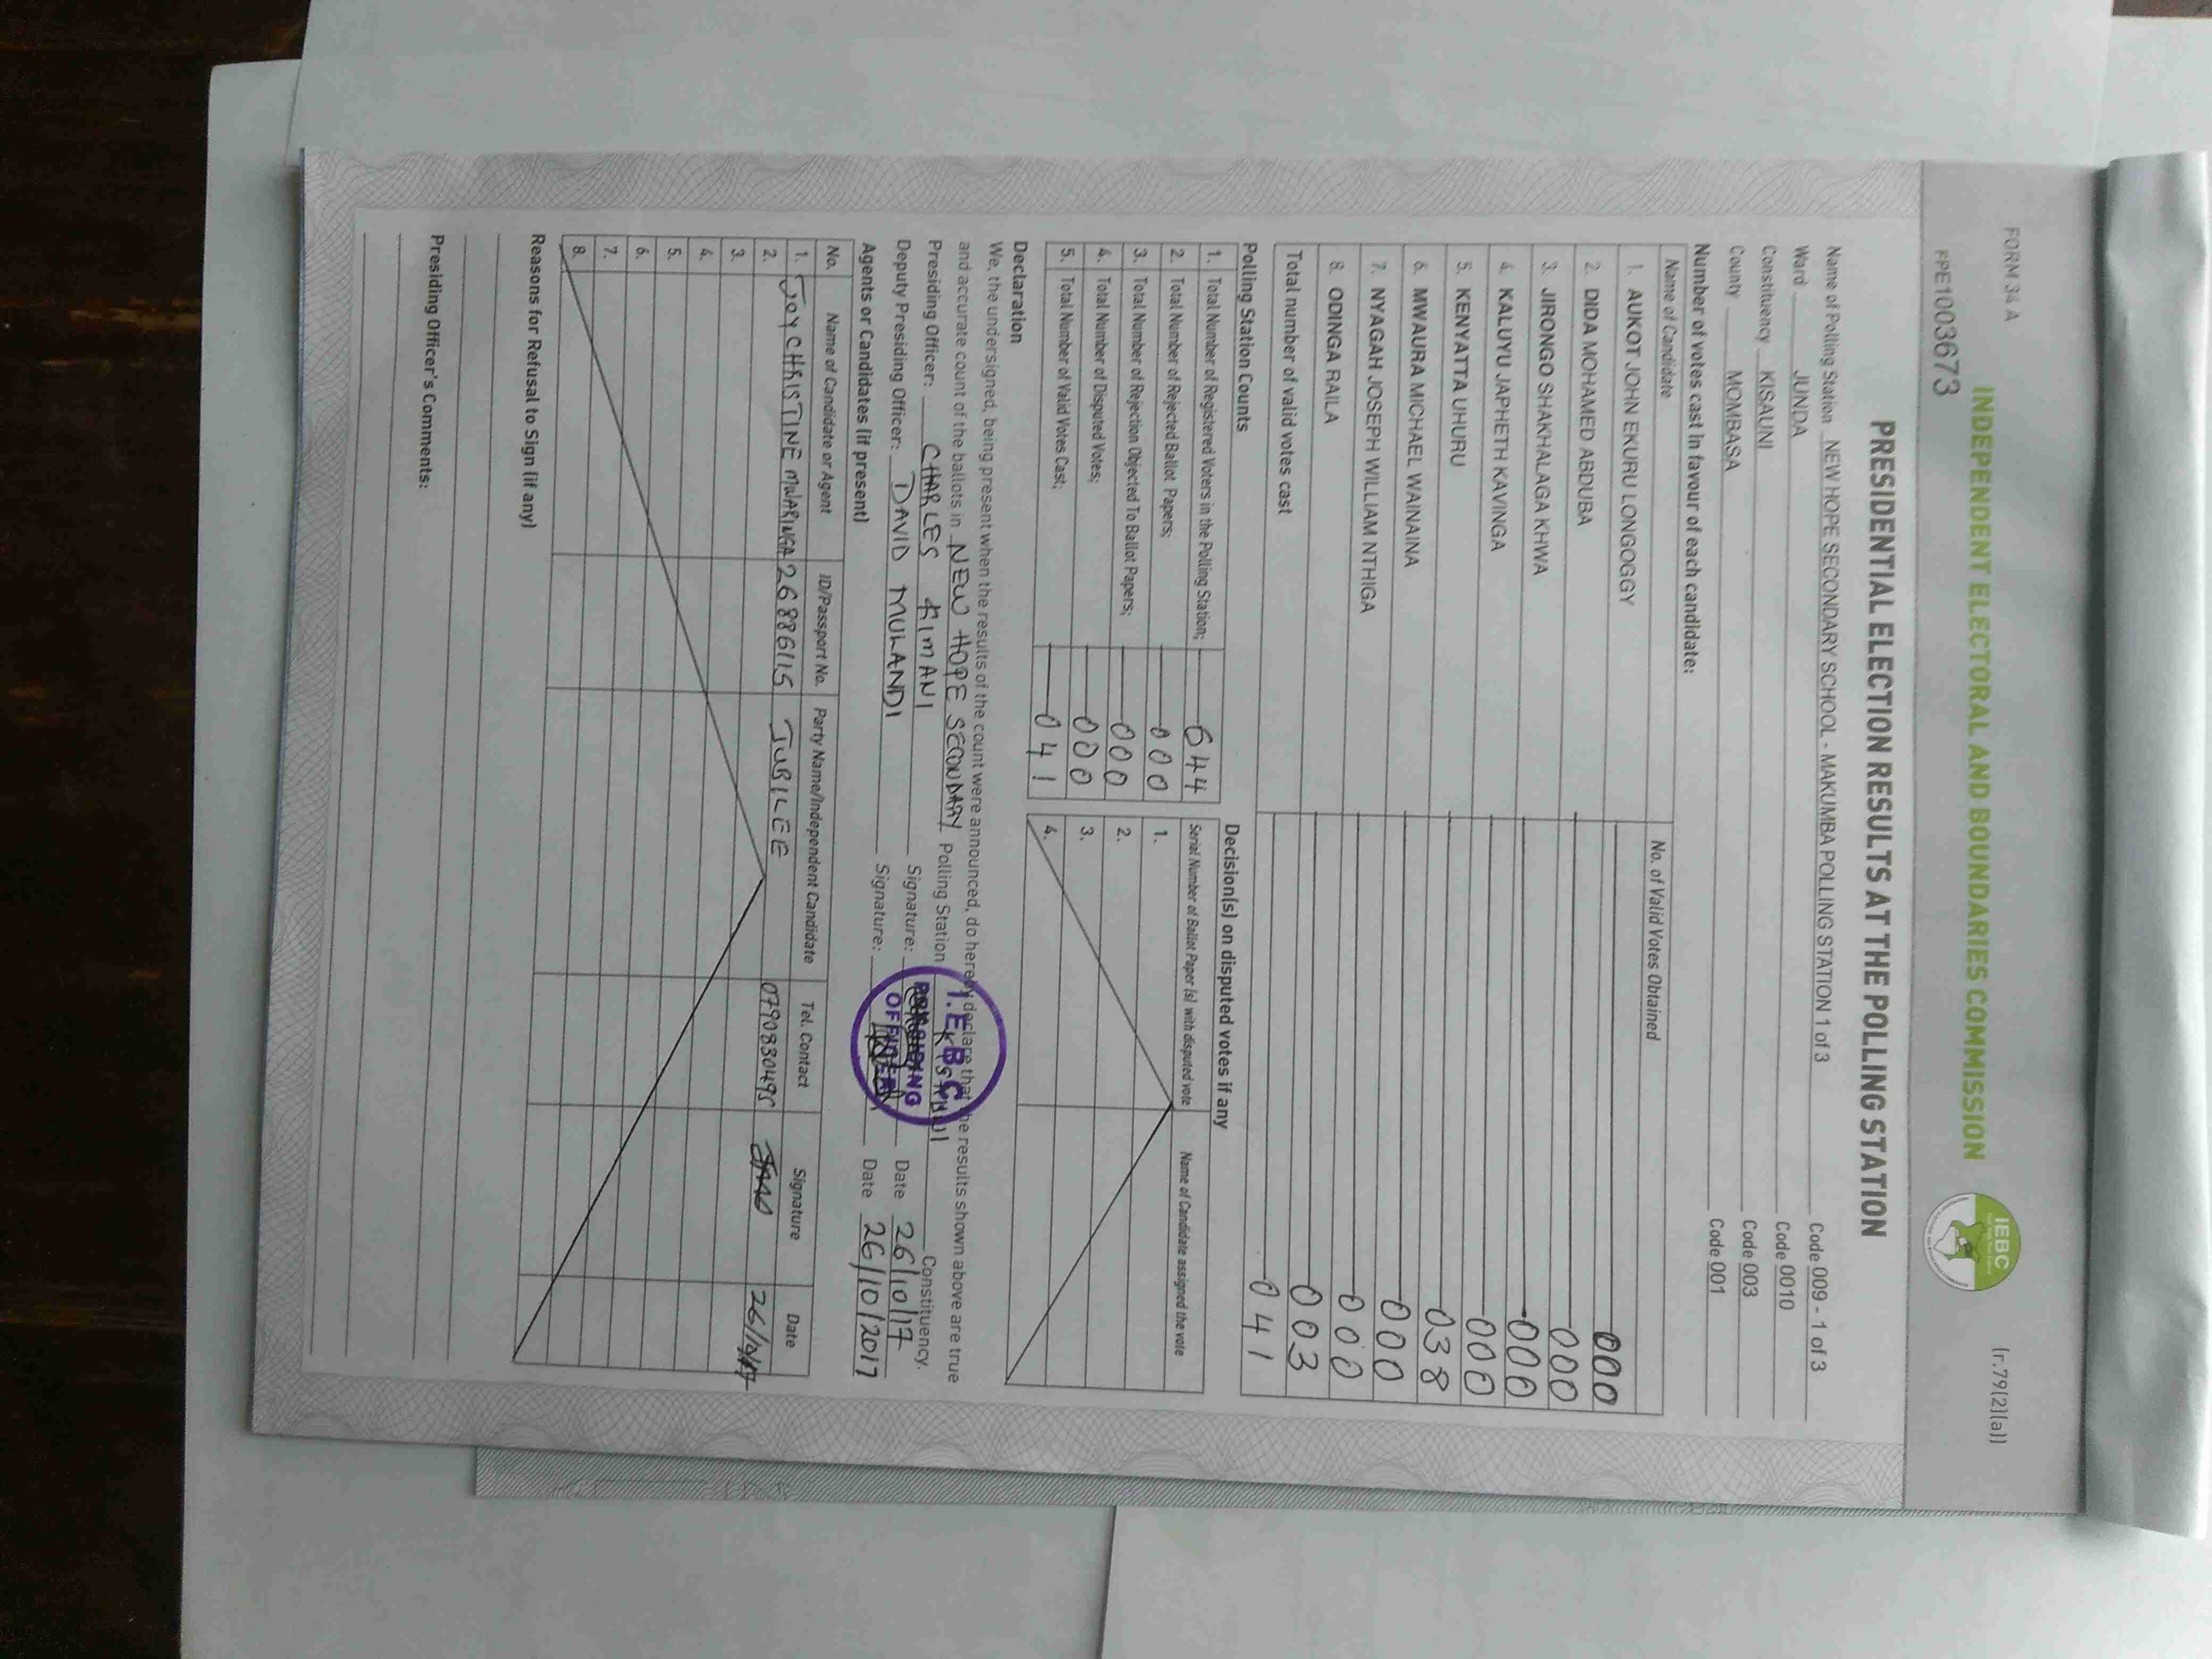 FORM 34 A
(r.79(2)(a))
INDEPENDENT ELECTORAL AND BOUNDARIES COMMISSION
IEBC
FPE1003673
PRESIDENTIAL ELECTION RESULTS AT THE POLLING STATION
Name of Polling Station NEW HOPE SECONDARY SCHOOL - MAKUMBA POLLING STATION 1 of 3 Code 009 - 1 of 3
Ward JUNDA Code 0010
Constituency KISAUNI Code 003
County MOMBASA Code 001
Number of votes cast in favour of each candidate:
Name of Candidate No. of Valid Votes Obtained
1. AUKOT JOHN EKURU LONGOGGY 000
2. DIDA MOHAMED ABDUBA 000
3. JIRONGO SHAKHALAGA KHWA 000
4. KALUYU JAPHETH KAVINGA 000
5. KENYATTA UHURU 038
6. MWAURA MICHAEL WAINAINA 000
7. NYAGAH JOSEPH WILLIAM NTHIGA 000
8. ODINGA RAILA 003
Total number of valid votes cast 041
Polling Station Counts
1. Total Number of Registered Voters in the Polling Station; 644
2. Total Number of Rejected Ballot Papers; 000
3. Total Number of Rejection Objected To Ballot Papers; 000
4. Total Number of Disputed Votes; 000
5. Total Number of Valid Votes Cast; 041
Decision(s) on disputed votes if any
Serial Number of Ballot Paper (s) with disputed vote Name of Candidate assigned the vote
1.
2.
3.
4.
Declaration
We, the undersigned, being present when the results of the count were announced, do hereby declare that the results shown above are true
and accurate count of the ballots in NEW HOPE SECONDARY Polling Station KISAUNI Constituency.
Presiding Officer: CHARLES KIMANI Signature: Date 26/10/17
Deputy Presiding Officer: DAVID MULANDI Signature: Date 26/10/2017
I.E.B.C
PRESIDING
OFFICER
Agents or Candidates (if present)
No. Name of Candidate or Agent ID/Passport No. Party Name/Independent Candidate Tel. Contact Signature Date
1. JOY CHRISTINE MWARINGA 26886115 JUBILEE 0790830495 26/10/17
2.
3.
4.
5.
6.
7.
8.
Reasons for Refusal to Sign (if any)
Presiding Officer's Comments: